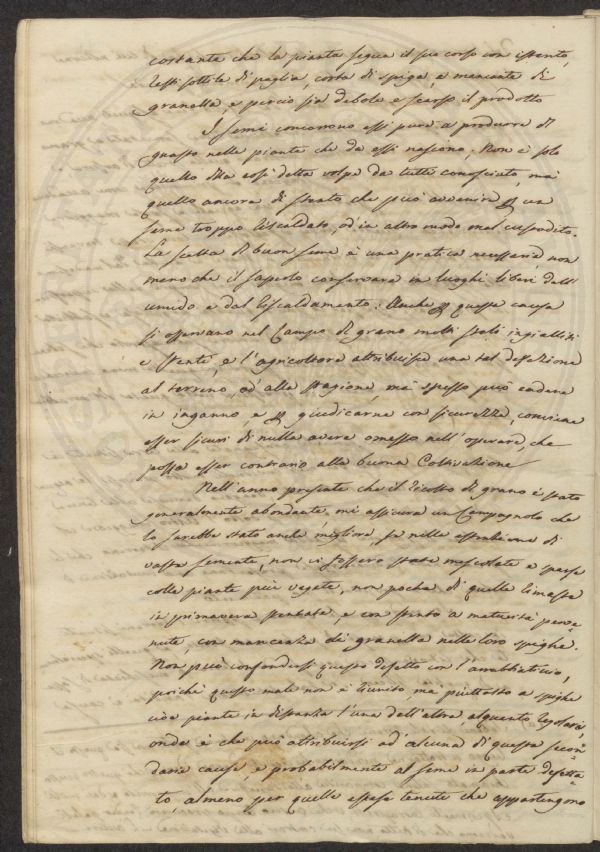 costante che la pianta segua il suo corso con istento,
testi sottili di paglia, corta di spiga, e mancante di
granella e perciò sia debole e scarso il prodotto
I semi concorrono essi pure a produrre di
guasto nelle piante che da essi nascono; Non è solo
quello di essi detta volpe da tutti conosciuto, ma
quello ancora di stento che può avvenire p un
seme troppo riscaldato, od in altro modo mal custodito.
La scelta di buon seme è una pratica necessaria non
meno che il saperlo conservare in luoghi liberi dall'
umido e dal riscaldamento. Anche p questa causa
si osservano nel Campo di grano molti steli ingialliti
e stenti, e l'agricoltore attribuisce una tal defezione
al terreno, od' alla stagione, ma spesso può cadere
in inganno, e p giudicarne con sicurezza, conviene
esser sicuri di nulla avere omesso nell'operare, che
possa esser contrario alla buona Coltivazione
Nell'anno presente che il ricolto di grano è stato
generalmente abondante, mi assicura un Campagnolo che
lo sarebbe stato anche migliore, se nelle estensioni di
vasta semente, non vi fossero state mescolate e sparse
colle piante più vegete, non poche di quelle rimaste
in primavera stentate, e con stento a maturità perve=
nute, con mancanza di granella nelle loro spighe.
Non può confondersi questo difetto con l'arrabbiaticcio,
poiché questo male non è riunito ma piuttosto a spighe
o piante in distanza l'una dell'altra alquanto regolare,
onde è che può attribuirsi ad' alcuna di queste secon=
darie cause, e probabilmente al seme in parte difetta=
to, almeno per quelle estese tenute che appartengono